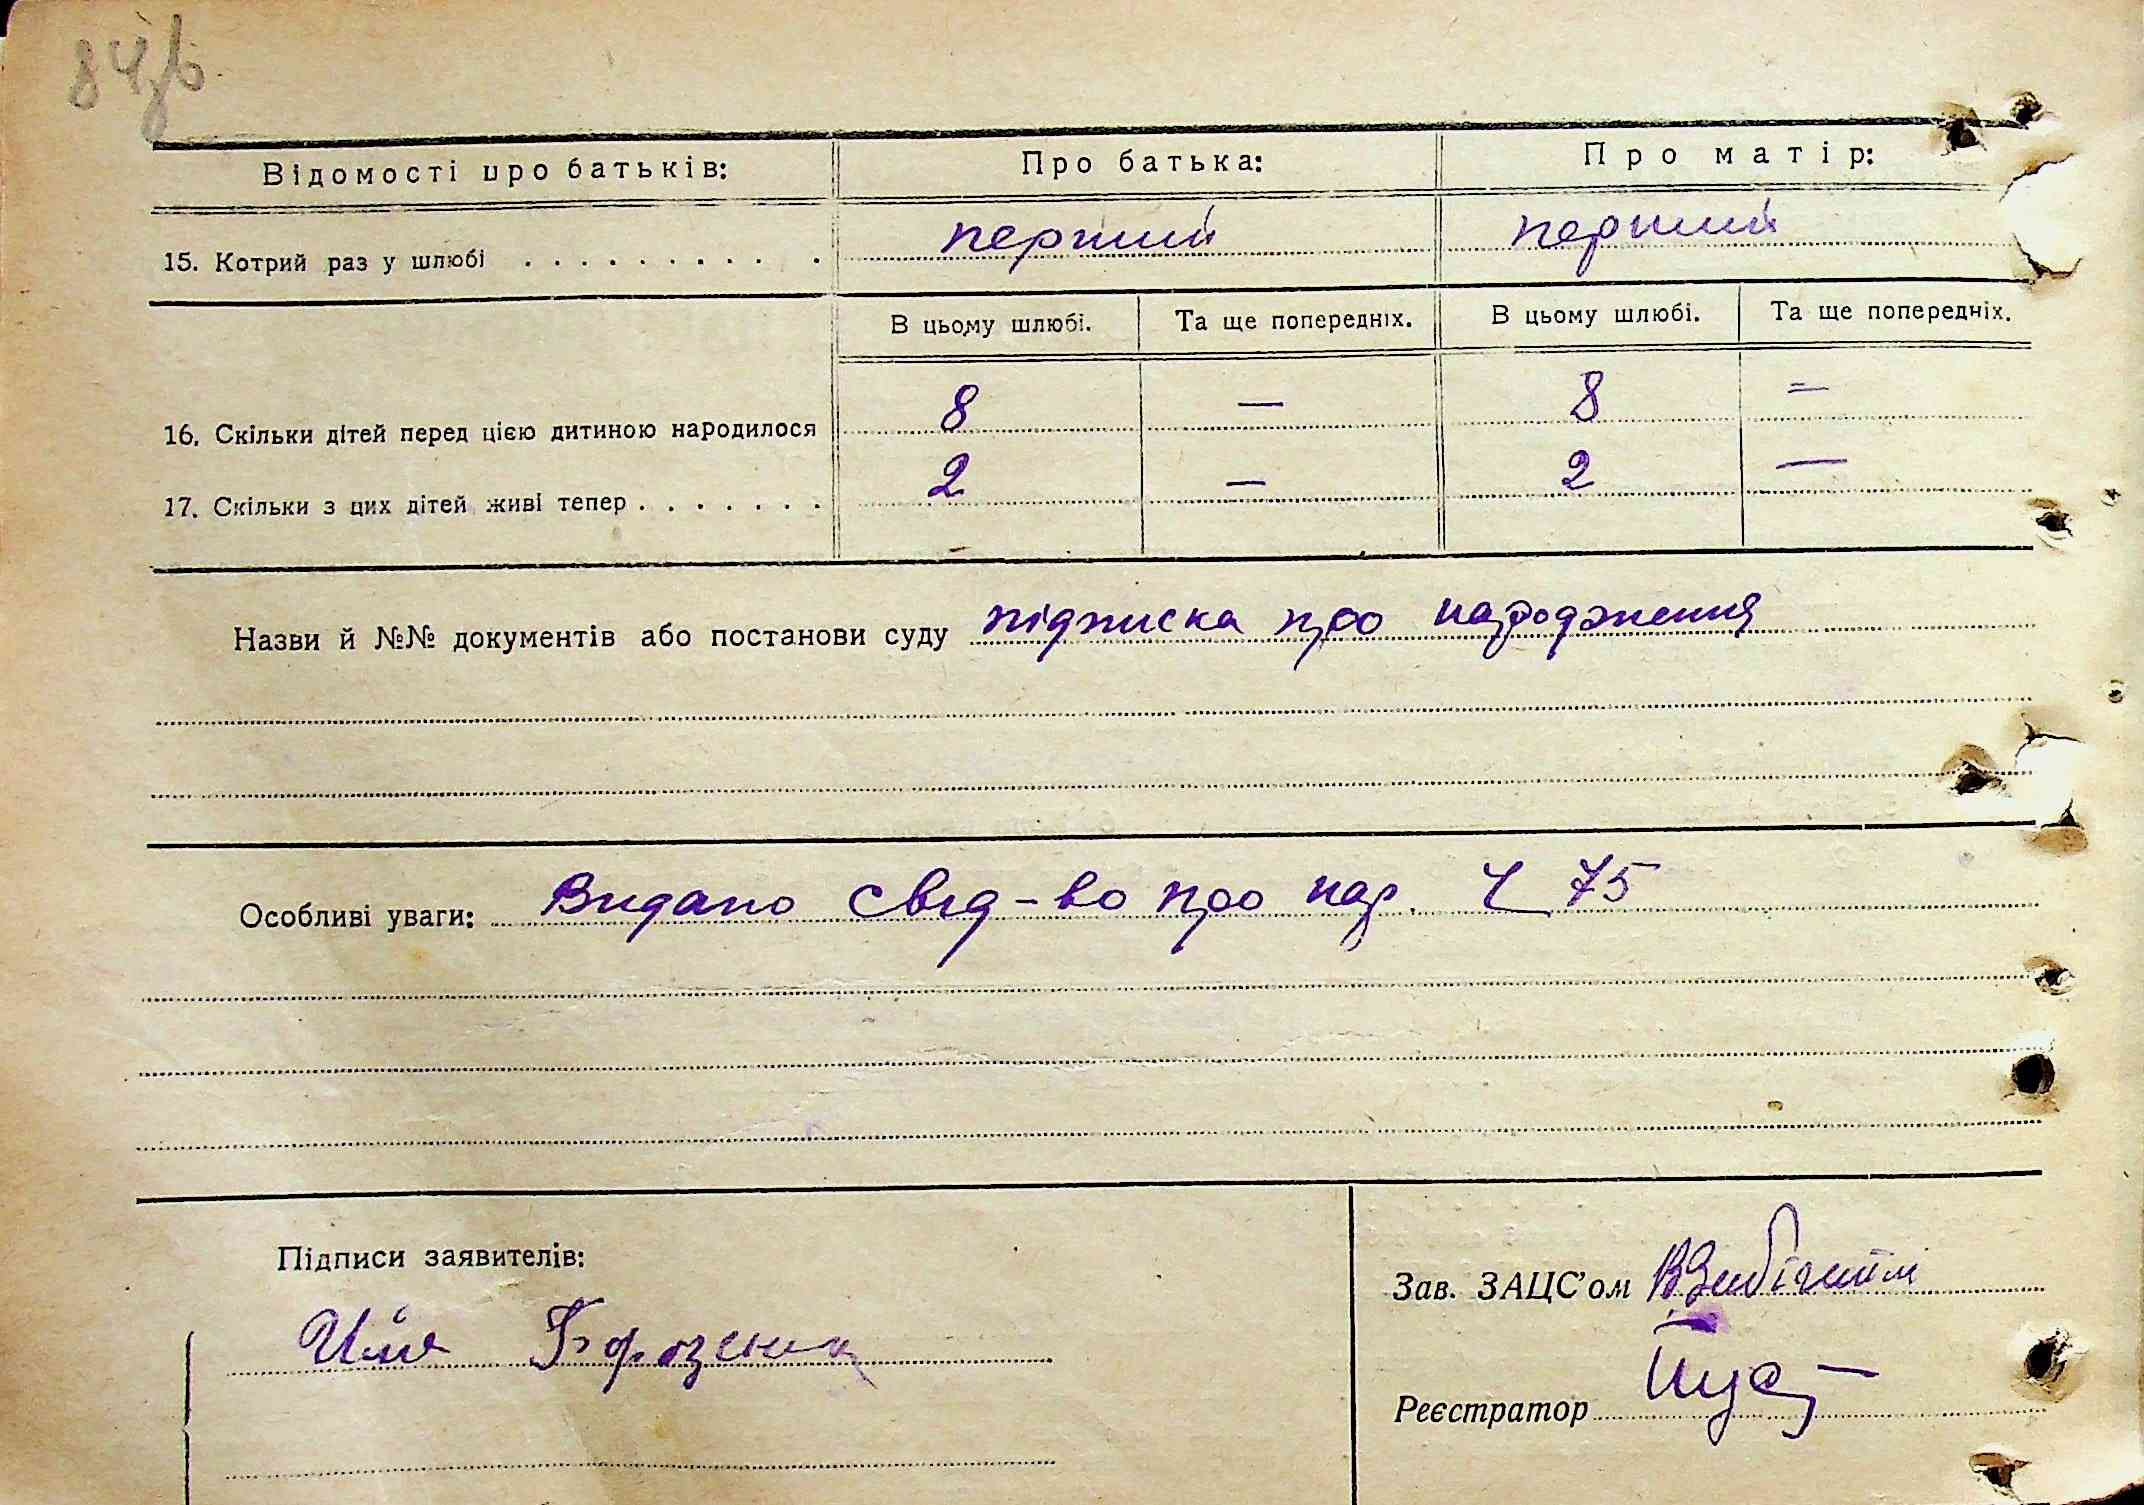 84зв
Відомості про батьків: Про батька: Про матір:
15. Котрий раз у шлюбі . . . . . . . . . . . перший перший
В цьому шлюбі. Та ще попередніх. В цьому шлюбі. Та ще попередніх.
16. Скільки дітей перед цією дитиною народилося 8 — 8 —
17. Скільки з цих дітей живі тепер . . . . . . . 2 — 2 —
Назви й №№ документів або постанови суду підписка про народження
Особливі уваги: Видано свід-во про нар. Ч 75
Підписи заявителів:
Зав. ЗАЦС'ом
Реєстратор